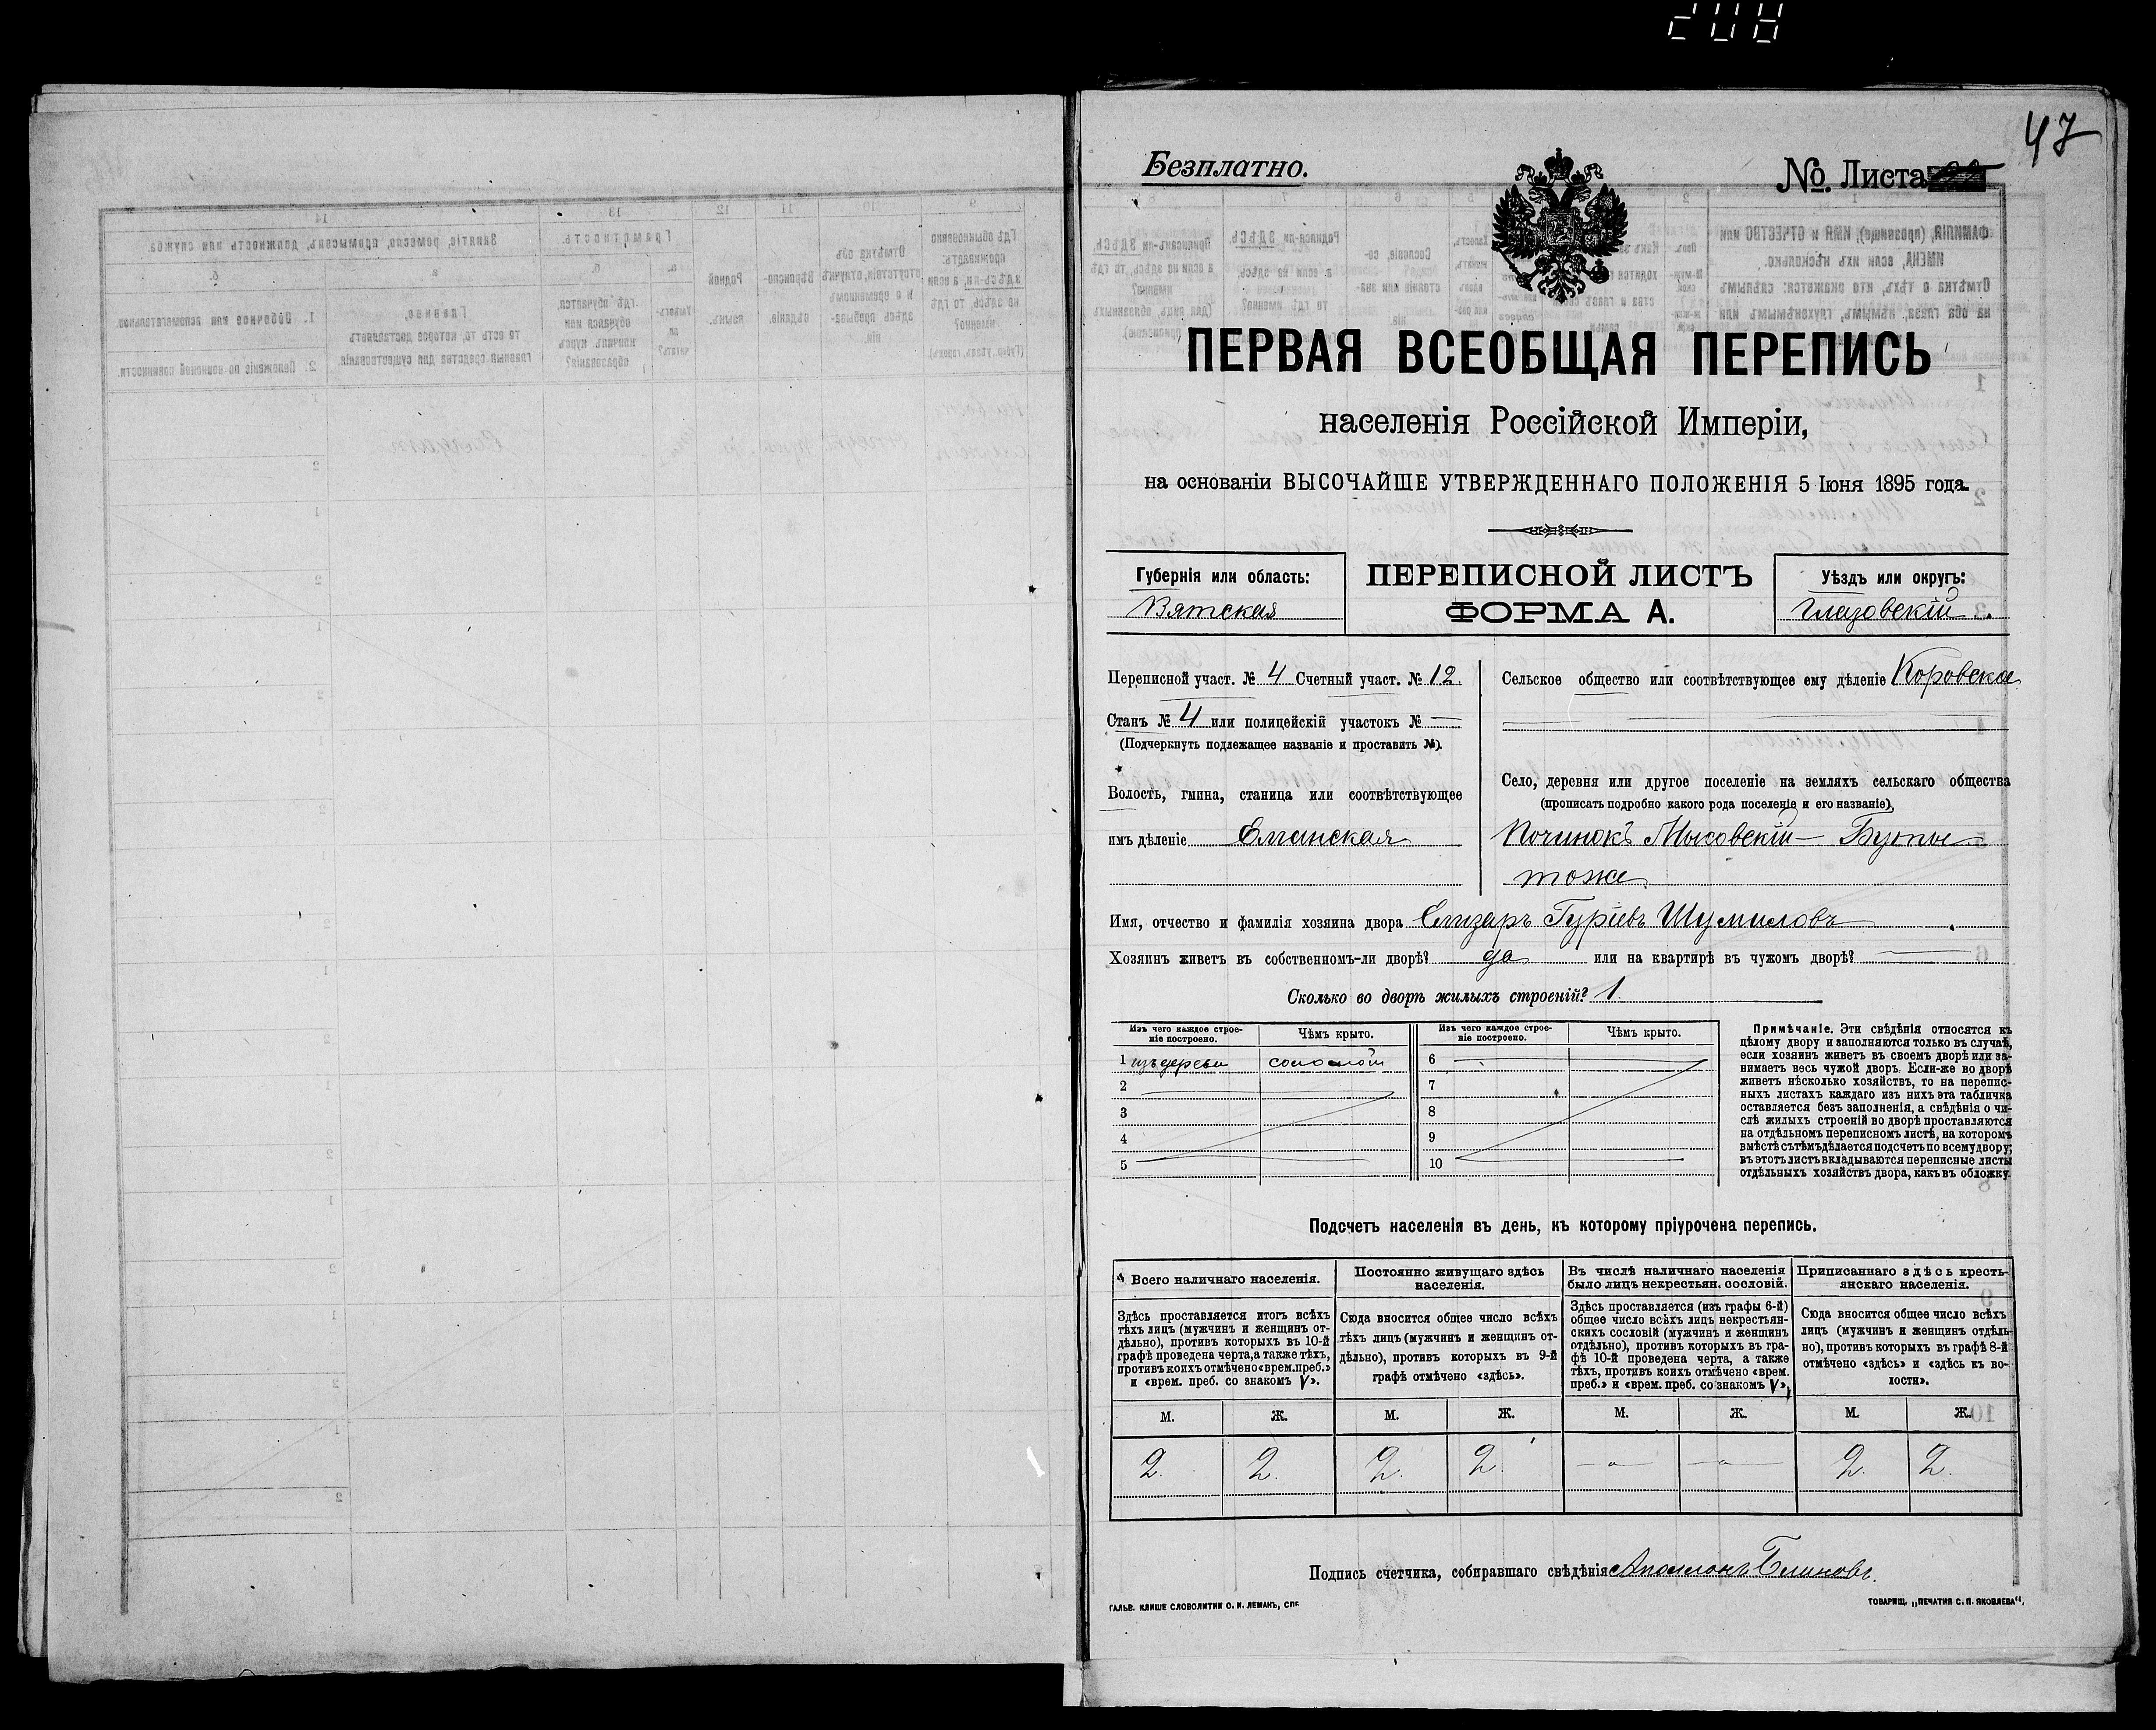 208
47
Безплатно.
№. Листа
ПЕРВАЯ ВСЕОБЩАЯ ПЕРЕПИСЬ
населенія Россійской Имперіи,
на основаніи ВЫСОЧАЙШЕ УТВЕРЖДЕННАГО ПОЛОЖЕНІЯ 5 Іюня 1895 года.
Губернія или область:
Вятская
ПЕРЕПИСНОЙ ЛИСТЪ
ФОРМА А.
Уѣздъ или округъ:
Глазовскій.
Переписной участ. № 4 Счетный участ. № 12.
Станъ № 4 или полицейскій участокъ № —
(Подчеркнуть подлежащее названіе и проставить №).
Волость, гмина, станица или соотвѣтствующее
имъ дѣленіе Елганская
Сельское общество или соотвѣтствующее ему дѣленіе Коровское
Село, деревня или другое поселеніе на земляхъ сельскаго общества
(прописать подробно какого рода поселеніе и его названіе),
Починокъ Мысовскій —
тоже
Имя, отчество и фамилія хозяина двора Елизаръ Гуріевъ Шумиловъ
Хозяинъ живетъ въ собственномъ-ли дворѣ? да или на квартирѣ въ чужомъ дворѣ? —
Сколько во дворѣ жилыхъ строеній? 1.
Изъ чего каждое строе-
ніе построено.
Чѣмъ крыто.
Изъ чего каждое строе-
ніе построено.
Чѣмъ крыто.
1 изъ дерева соломой 6
2 7
3 8
4 9
5 10
Примѣчаніе. Эти свѣдѣнія относятся къ
цѣлому двору и заполняются только въ случаѣ,
если хозяинъ живетъ въ своемъ дворѣ или за-
нимаетъ весь чужой дворъ. Если-же во дворѣ
живетъ нѣсколько хозяйствъ, то на перепис-
ныхъ листахъ каждаго изъ нихъ эта табличка
оставляется безъ заполненія, а свѣдѣнія о чи-
слѣ жилыхъ строеній во дворѣ проставляются
на отдѣльномъ переписномъ листѣ, на которомъ
вмѣстѣ съ тѣмъ дѣлается подсчетъ по всему двору;
въ этотъ листъ вкладываются переписные листы
отдѣльныхъ хозяйствъ двора, какъ въ обложку.
Подсчетъ населенія въ день, къ которому пріурочена перепись.
Всего наличнаго населенія.
Здѣсь проставляется итогъ всѣхъ
тѣхъ лицъ (мужчинъ и женщинъ от-
дѣльно), противъ которыхъ въ 10-й
графѣ проведена черта, а также тѣхъ,
противъ коихъ отмѣчено «врем. преб.»
и «врем. преб. со знакомъ V».
Постоянно живущаго здѣсь
населенія.
Сюда вносится общее число всѣхъ
тѣхъ лицъ (мужчинъ и женщинъ от-
дѣльно), противъ которыхъ въ 9-й
графѣ отмѣчено «здѣсь».
Въ числѣ наличнаго населенія
было лицъ некрестьян. сословій.
Здѣсь проставляется (изъ графы 6-й)
общее число всѣхъ лицъ некрестьян-
скихъ сословій (мужчинъ и женщинъ
отдѣльно), противъ которыхъ въ гра-
фѣ 10-й проведена черта, а также
тѣхъ, противъ коихъ отмѣчено «врем.
преб.» и «врем. преб. со знакомъ V».
Приписаннаго здѣсь кресть-
янскаго населенія.
Сюда вносится общее число всѣхъ
лицъ (мужчинъ и женщинъ отдѣль-
но), противъ которыхъ въ графѣ 8-й
отмѣчено «здѣсь» и «здѣсь къ во-
лости».
М. Ж. М. Ж. М. Ж. М. Ж.
2. 2. 2. 2. — — 2. 2.
Подпись счетчика, собиравшаго свѣдѣнія Аполлонъ Блиновъ.
ГАЛЬВ. КЛИШЕ СЛОВОЛИТНИ О. И. ЛЕМАНЪ, СПБ
ТОВАРИЩ. „ПЕЧАТНЯ С. П. ЯКОВЛЕВА“.